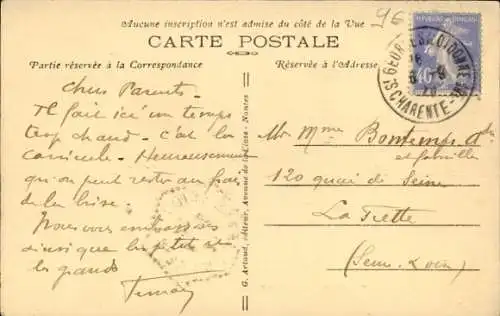 Aucune inscription n'est admise du côté de la Vue
96
CARTE POSTALE
Partie réservée à la Correspondance
Réservée à l'Adresse
REPUBLIQUE FRANÇAISE
40
GEORGES-DIDONNE
CHARENTE-
Chers Parents.
Il fait ici un temps
trop chaud. c'est la
canicule. Heureusement
qu'on peut rester au frais
de la brise.
Nous vous embrassons
ainsi que les petits et
les grands
G. Artaud, éditeur, Avenue de la Close, Nantes
Mr Mme Bontemps
et famille
120 quai de Seine
La Frette
(Seine